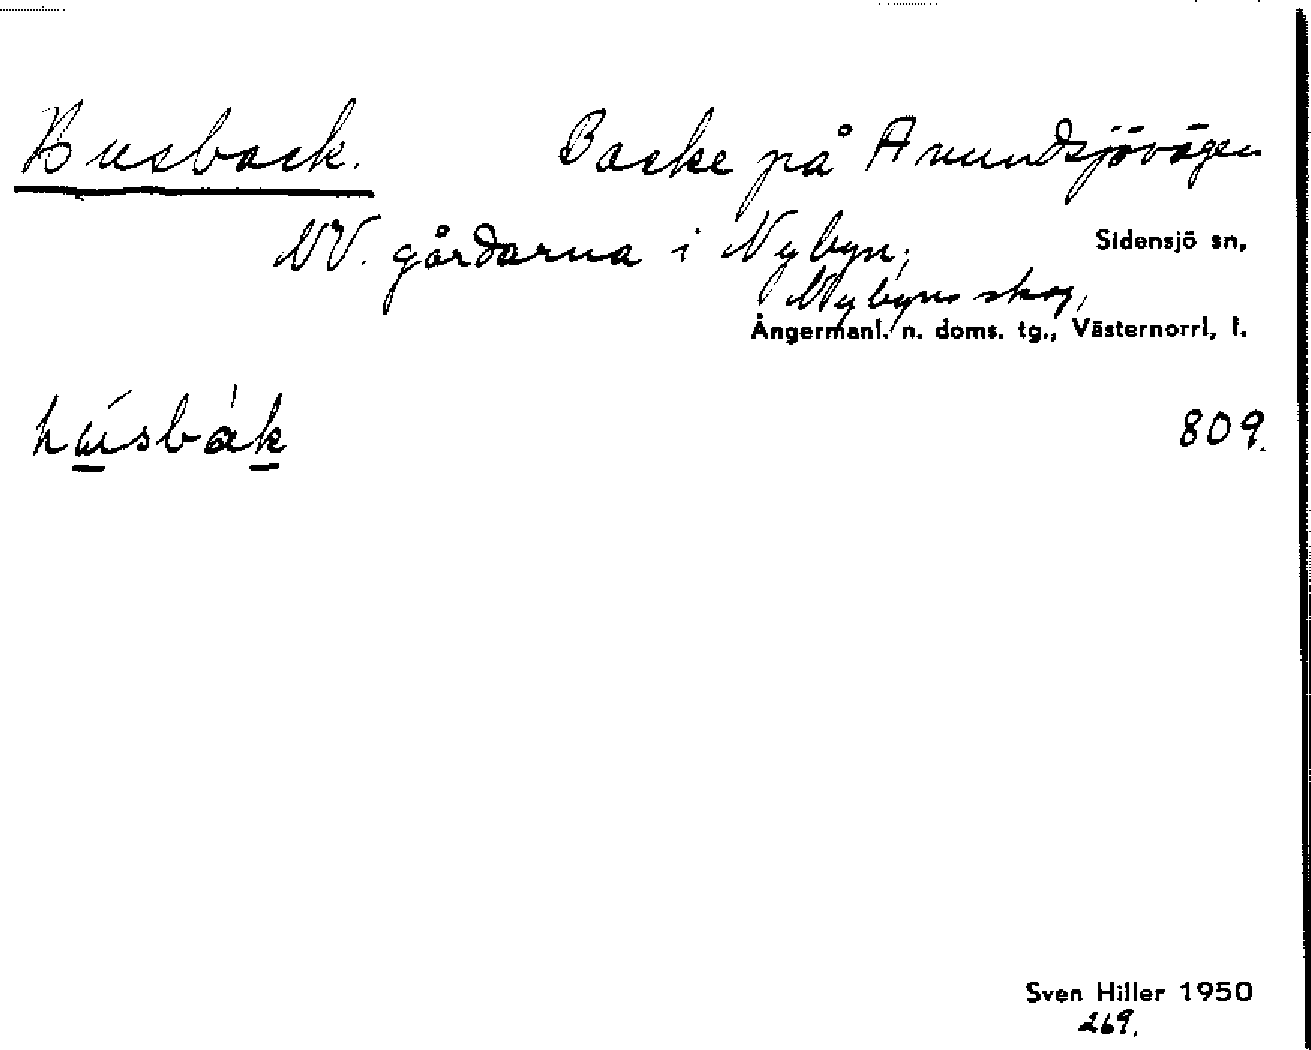 Busback. Backe på Anundsjövägen
NV. gårdarna i Nybyn,
Sidensjö sn,
Nybyns skog,
Ångermanl. n. doms. tg., Västernorrl. l.
809.
Sven Hiller 1950
269.